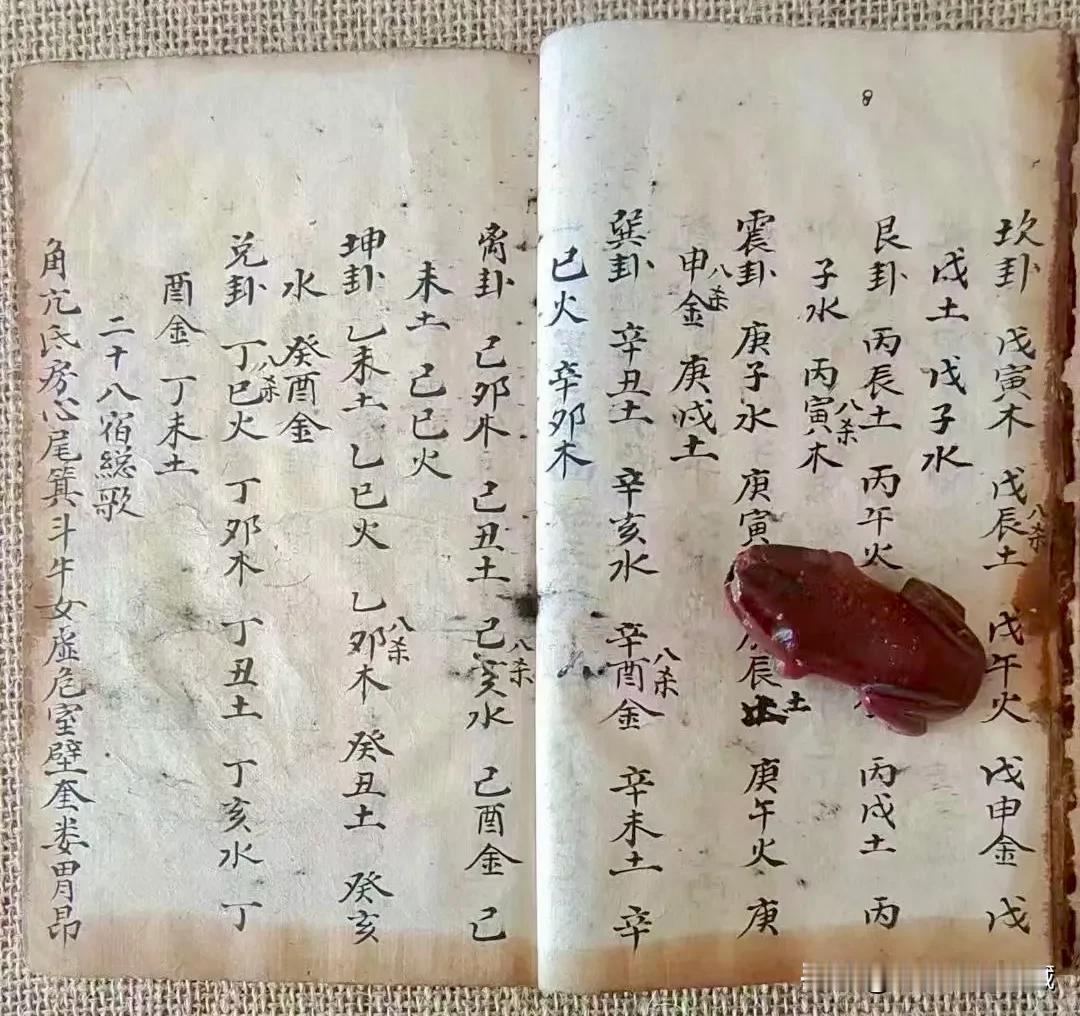 坎卦 戊寅木 戊辰土 八杀 戊午火 戊申金 戊
戌土 戊子水
艮卦 丙辰土 丙午火 丙戌土 丙
子水 丙寅木 八杀
震卦 庚子水 庚寅 辰土 庚午火 庚
申金 八杀 庚戌土
巽卦 辛丑土 辛亥水 辛酉金 八杀 辛未土 辛
巳火 辛卯木
离卦 己卯木 己丑土 己亥水 八杀 己酉金 己
未土 己巳火
坤卦 乙未土 乙巳火 乙卯木 八杀 癸丑土 癸亥
水 癸酉金
兑卦 丁巳火 八杀 丁卯木 丁丑土 丁亥水 丁
酉金 丁未土
二十八宿総歌
角亢氐房心尾箕斗牛女虚危室壁奎娄胃昴